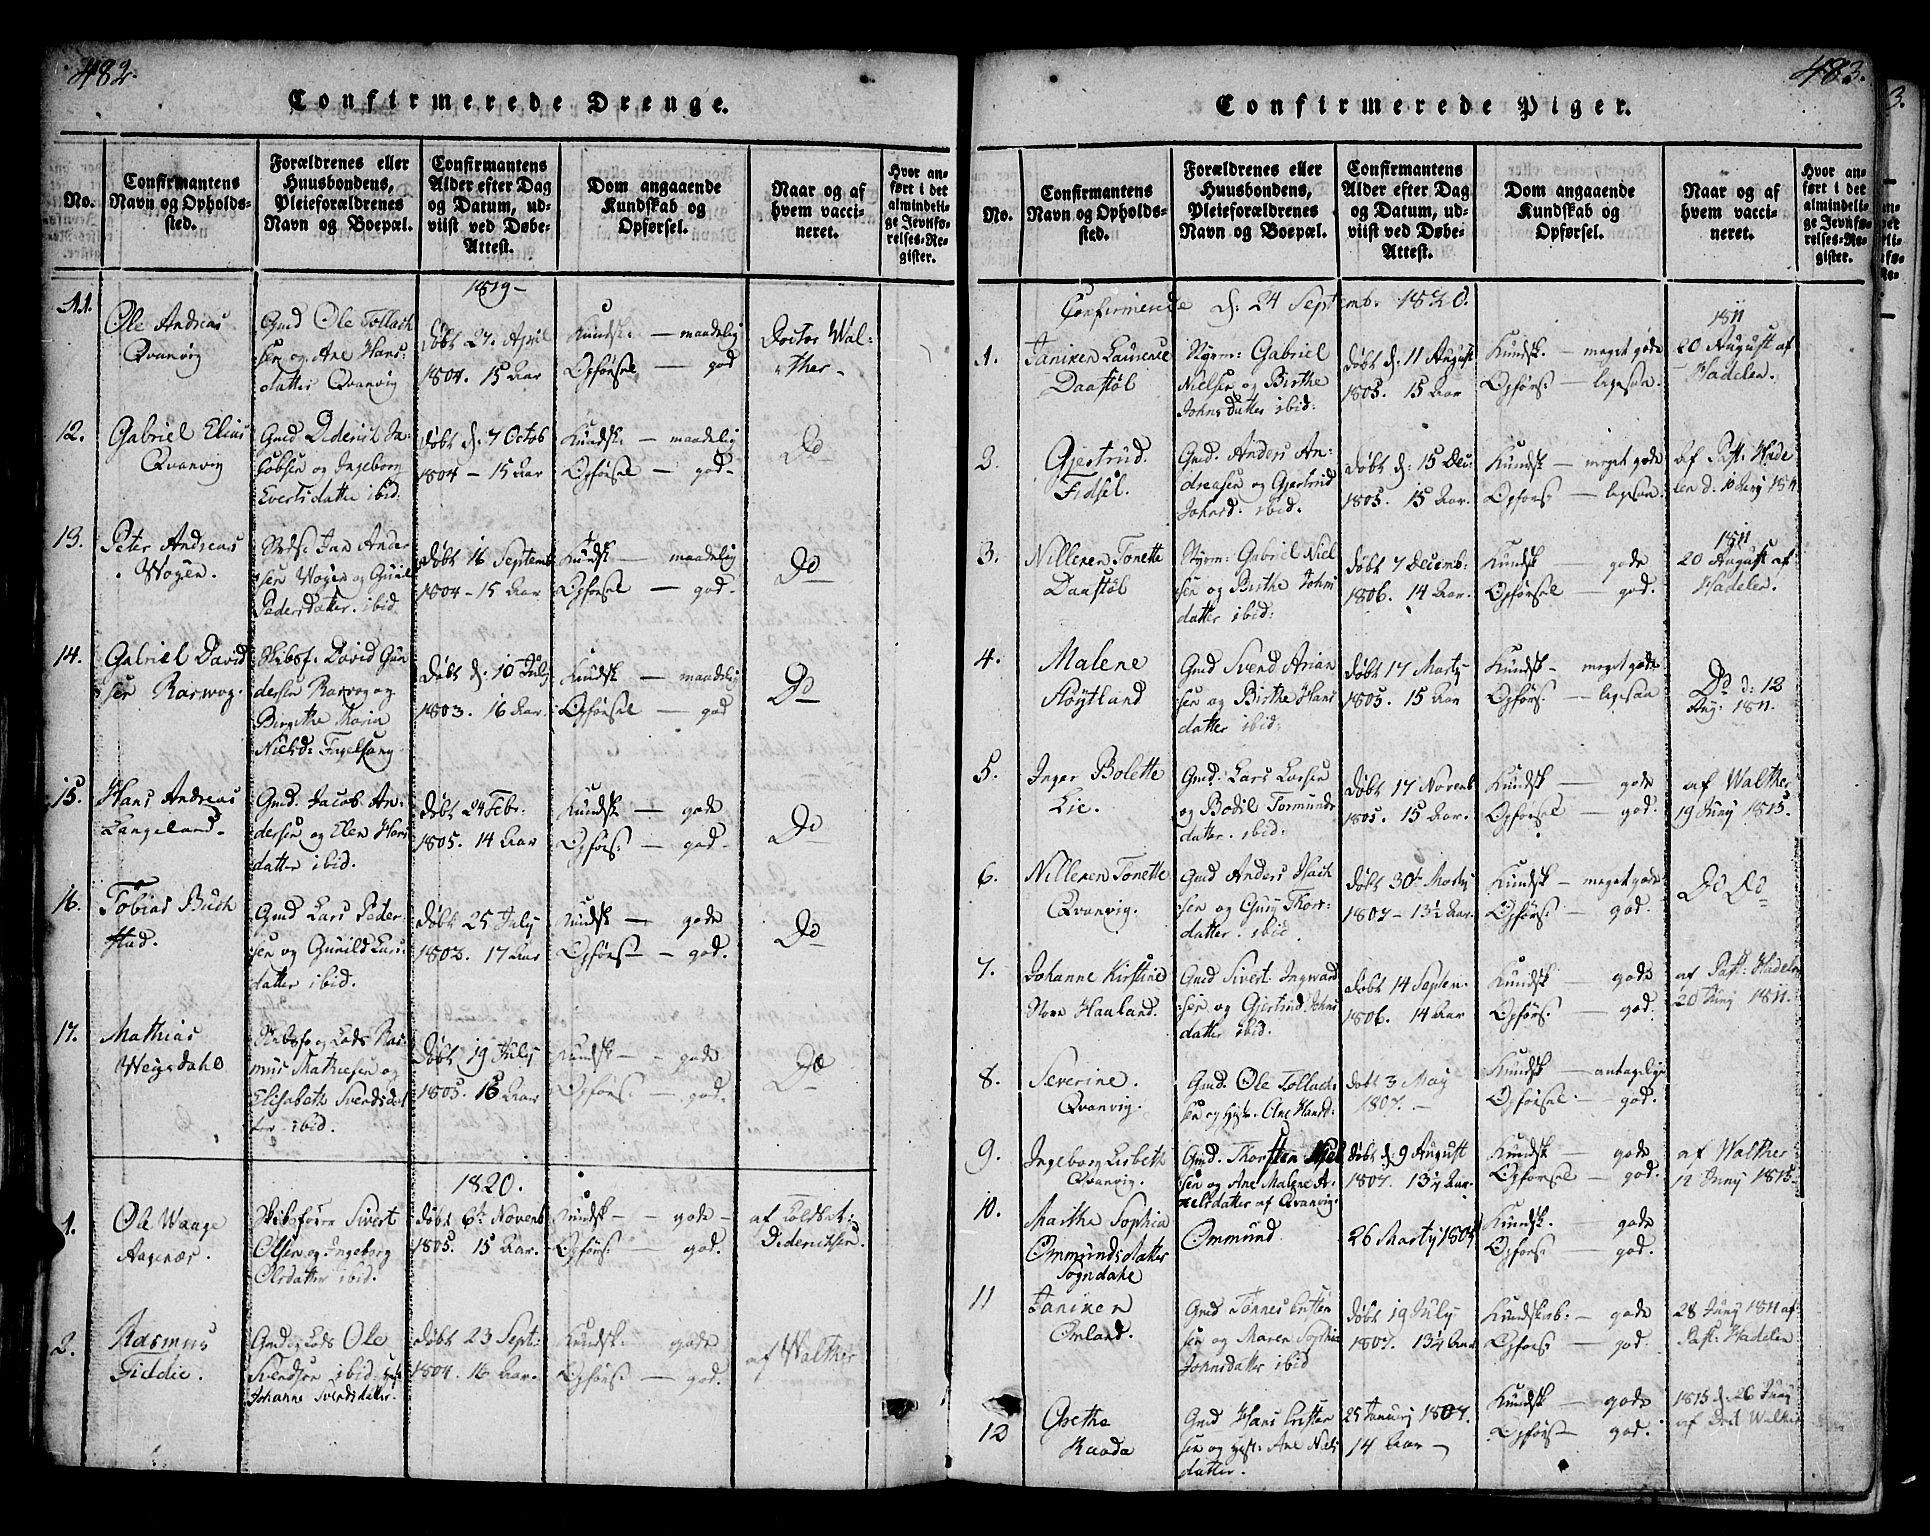 482.
Confirmerede Drenge.
No.
Confirmantens Navn og Opholdssted.
Forældrenes eller Huusbondens, Pleieforældrenes Navn og Boepæl.
Confirmantens Alder efter Dag og Datum, udviist ved Døbe-Attest.
Dom angaaende Kundskab og Opførsel.
Naar og af hvem vaccineret.
Hvor anført i det almindelige Jevnførelses-Register.
1819-
11.
Ole Andreas
Qvanvig
Gmd Ole Tollach
sen og Ane Hans
datter Qvanvig
Døbt 27. April
1804. 15 Aar
Kundsk: — maadelig
Opførsel — god
Doctor Wal=
ther -
12.
Gabriel Elias
Qvanvig
Gmd Diderik Ja=
cobsen og Ingeborg
Evertsdatter ibid.
Døbt d: 7 Octob
1804 — 15 Aar
Kundsk. — maadelig
Opførsel — god-
Do
13.
Peter Andreas
Wogen.
sen Wogen og Gunil
Pedersdatter. ibid
Døbt 16 Septemb
1804 - 15 Aar
Kundsk — maadelig
Opførsel — god-
Do
14.
Gabriel David
sen Rasvog.
Skibsf: David Gun
dersen Rasvog og
Birgithe Karia
Nielsd: Fugelsang
Døbt d: 10 July
1803. 16 Aar.
Kundsk — maadelig
Opførsel — god
Do
15.
Hans Andreas
Langeland.
Gmd. Jacob An=
dersen og Elen Hans
datter ibid.
Døbt 24 Febr:
1805. 14 Aar
Kundsk — gode
Opførs: — god.
Do
16.
Tobias Buch
stad.
Gmd Lars Peder
sen og Gunild Lars
datter ibid.
Døbt 25 July
1802. 17 Aar
Kundsk — gode
Opførs — god.
Do
17.
Mathias
Weigsdahl
Skibsfø og Lods Ras
mus Mathiesen og
Elisabeth Svendsdat
ter ibid.
Døbt 19 July
1803. 16 Aar
Kundsk — gode
Opførs: — god.
Do
1820.
1.
Ole Waage
Aagenæs.
Skibsfører Sivert
Olsen og Ingeborg
Olsdatter ibid.
Døbt 6t Novemb
1805. 15 Aar.
Kundsk — gode -
Opførs: — god.
af Coldb:
Diderichsen.
2.
Rasmus
Giddie.
Gmd og Lods Ole
Svendsen ibid.
Johanne Svendsdatter.
Døbt 23 Sept:
1804. 16 Aar.
Kundsk - gode
Opførs: — god.
af Walther
483.
Confirmerede Piger.
No.
Confirmantens Navn og Opholdssted.
Forældrenes eller Huusbondens, Pleieforældrenes Navn og Boepæl.
Confirmantens Alder efter Dag og Datum, udviist ved Døbe-Attest.
Dom angaaende Kundskab og Opførsel.
Naar og af hvem vaccineret.
Hvor anført i det almindelige Jevnførelses-Register.
Confirmerede d: 24 Septemb. 1820.
1.
Janiken Laurence
Daatstøl
Styrm: Gabriel
Nielsen og Birthe
Johnsdatter ibid:
Døbt d: 11 August
1805. 15 Aar
Kundsk. — meget gode
Opførs: — ligesaa.
1811
20 August af
Hadelen.
2.
Gjertrud.
Fidsel.
Gmd. Anders An=
dreasen og Gjertrud
Johnsd. ibid.
Døbt d: 15 Dec:
1805. 15 Aar.
Kundsk — meget gode
Opførs: — ligesaa:
af Past: Hade
len
3.
Nilleken Tonette
Daatstøl
Styrm: Gabriel Niel
sen og Birthe Johns
datter ibid:
Døbt 7 Decemb:
1806. 14 Aar.
Kundsk — gode
Opførsel — god.
1811
20 August af
Hadelen.
4.
Malene
Høytland
Gmd Svend Arian
sen og Birthe Hans
datter ibid:
Døbt 17 Marty
1805. 15 Aar
Kundsk — meget gode
Opførs: — ligesaa
Do d: 12
Aug: 1811.
5.
Inger Bolette
Lie.
Gmd: Lars Larsen
og Bodil Tormunds
datter. ibid:
Døbt 17 Novemb
1805. 15 Aar.
Kundsk — gode
Opførsel — god.
af Walther
19 Juny 1815.
6.
Nilleken Tonette
Qvanvig.
Gmd Anders Isach
sen og Guri Thors=
datter. ibid
Døbt 30t Marty
1807 — 13½ Aar.
Kundsk — meget gode
Opførs: — god.
Do Do
7.
Johanne Kirstine
Store Haaland.
Gmd Sivert Ingvard
sen og Giertrud Johns
datter ibid.
Døbt 14 Septem
1806. 14 Aar
Kundsk — gode
Opførs: — god.
af Past: Hadelen
20 Juny 1811.
8.
Severine.
Qvanvig.
Gmd. Ole Tollach=
sen og Hust. Ane Hansd:
Døbt 3 May
1807. —
Kundsk — antagelige
Opførsel — god.
9.
Ingeborg Lisbeth
Qvanvig.
Gmd. Thorsten Niel
sen og Ane Malene A=
xelsdatter af Qvanvig.
Døbt d: 9 August
1807. 13¼ Aar.
Kundsk — gode
Opførsel — god.
af Walther
12 Juny 1815.
10.
Marthe Sophia
Ommundsdatter
Sogndahl
Ommund
26 Marty 1805
Kundsk. — gode
Opførs: — god.
11
Janiken
Omland.
Gmd Tønnes Critten
sen og Maren Sophia
Johnsdatter ibid
Døbt 19 July
1807. 13¼ Aar
Kundskab: — gode
Opførs: — god.
28 Juny 1811 af:
Past: Hadelen
12
Grethe
Raada
Gmd Hans Crister
sen og Hust: Ane Niels
datter.
25 January 1807.
14 Aar —
Kundsk — gode
Opførs — god.
1815 d. 26 Juny
af Doct Walther